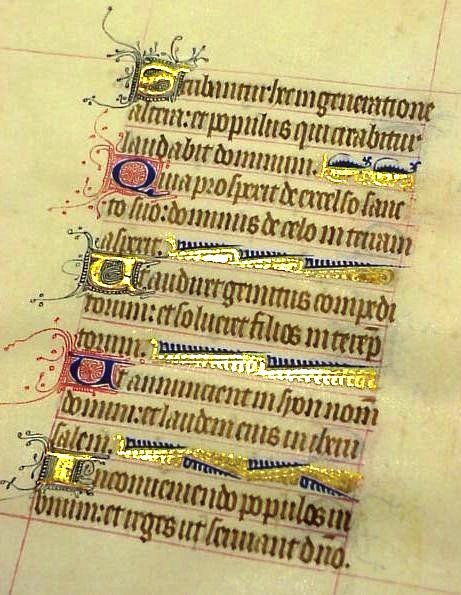 Scribantur hec in generatione
altera: et populus qui creabitur
laudabit dominum.
Quia prospexit de excelso sanc
to suo: dominus de celo in terram
aspexit.
Ut audiret gemitus compedi
torum: et solueret filios interēp
torum.
Ut annuncient in syon nom̄
domini: et laudem eius in iheru
salem.
In conueniendo populos in
unum: et reges ut seruiant dn̄o.